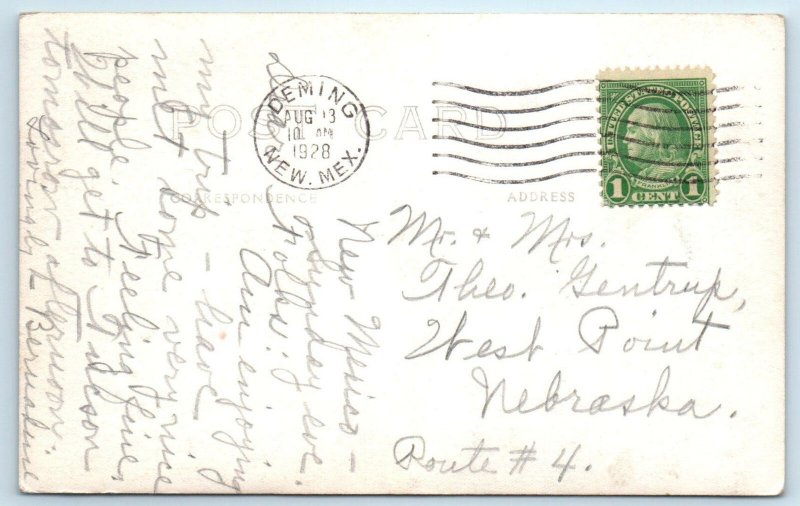 POST CARD
CORRESPONDENCE
ADDRESS
DEMING
AUG 13
10 AM
1928
NEW. MEX.
UNITED STATES POSTAGE
FRANKLIN
1 CENT 1
New Mexico –
Sunday eve.
Folks:
Am enjoying
my trip – have
met some very nice
people. Feeling fine,
Will get to Tucson
tomorrow afternoon.
Lovingly – Bernadine
Mr. & Mrs.
Theo. Gentrup,
West Point
Nebraska.
Route # 4.